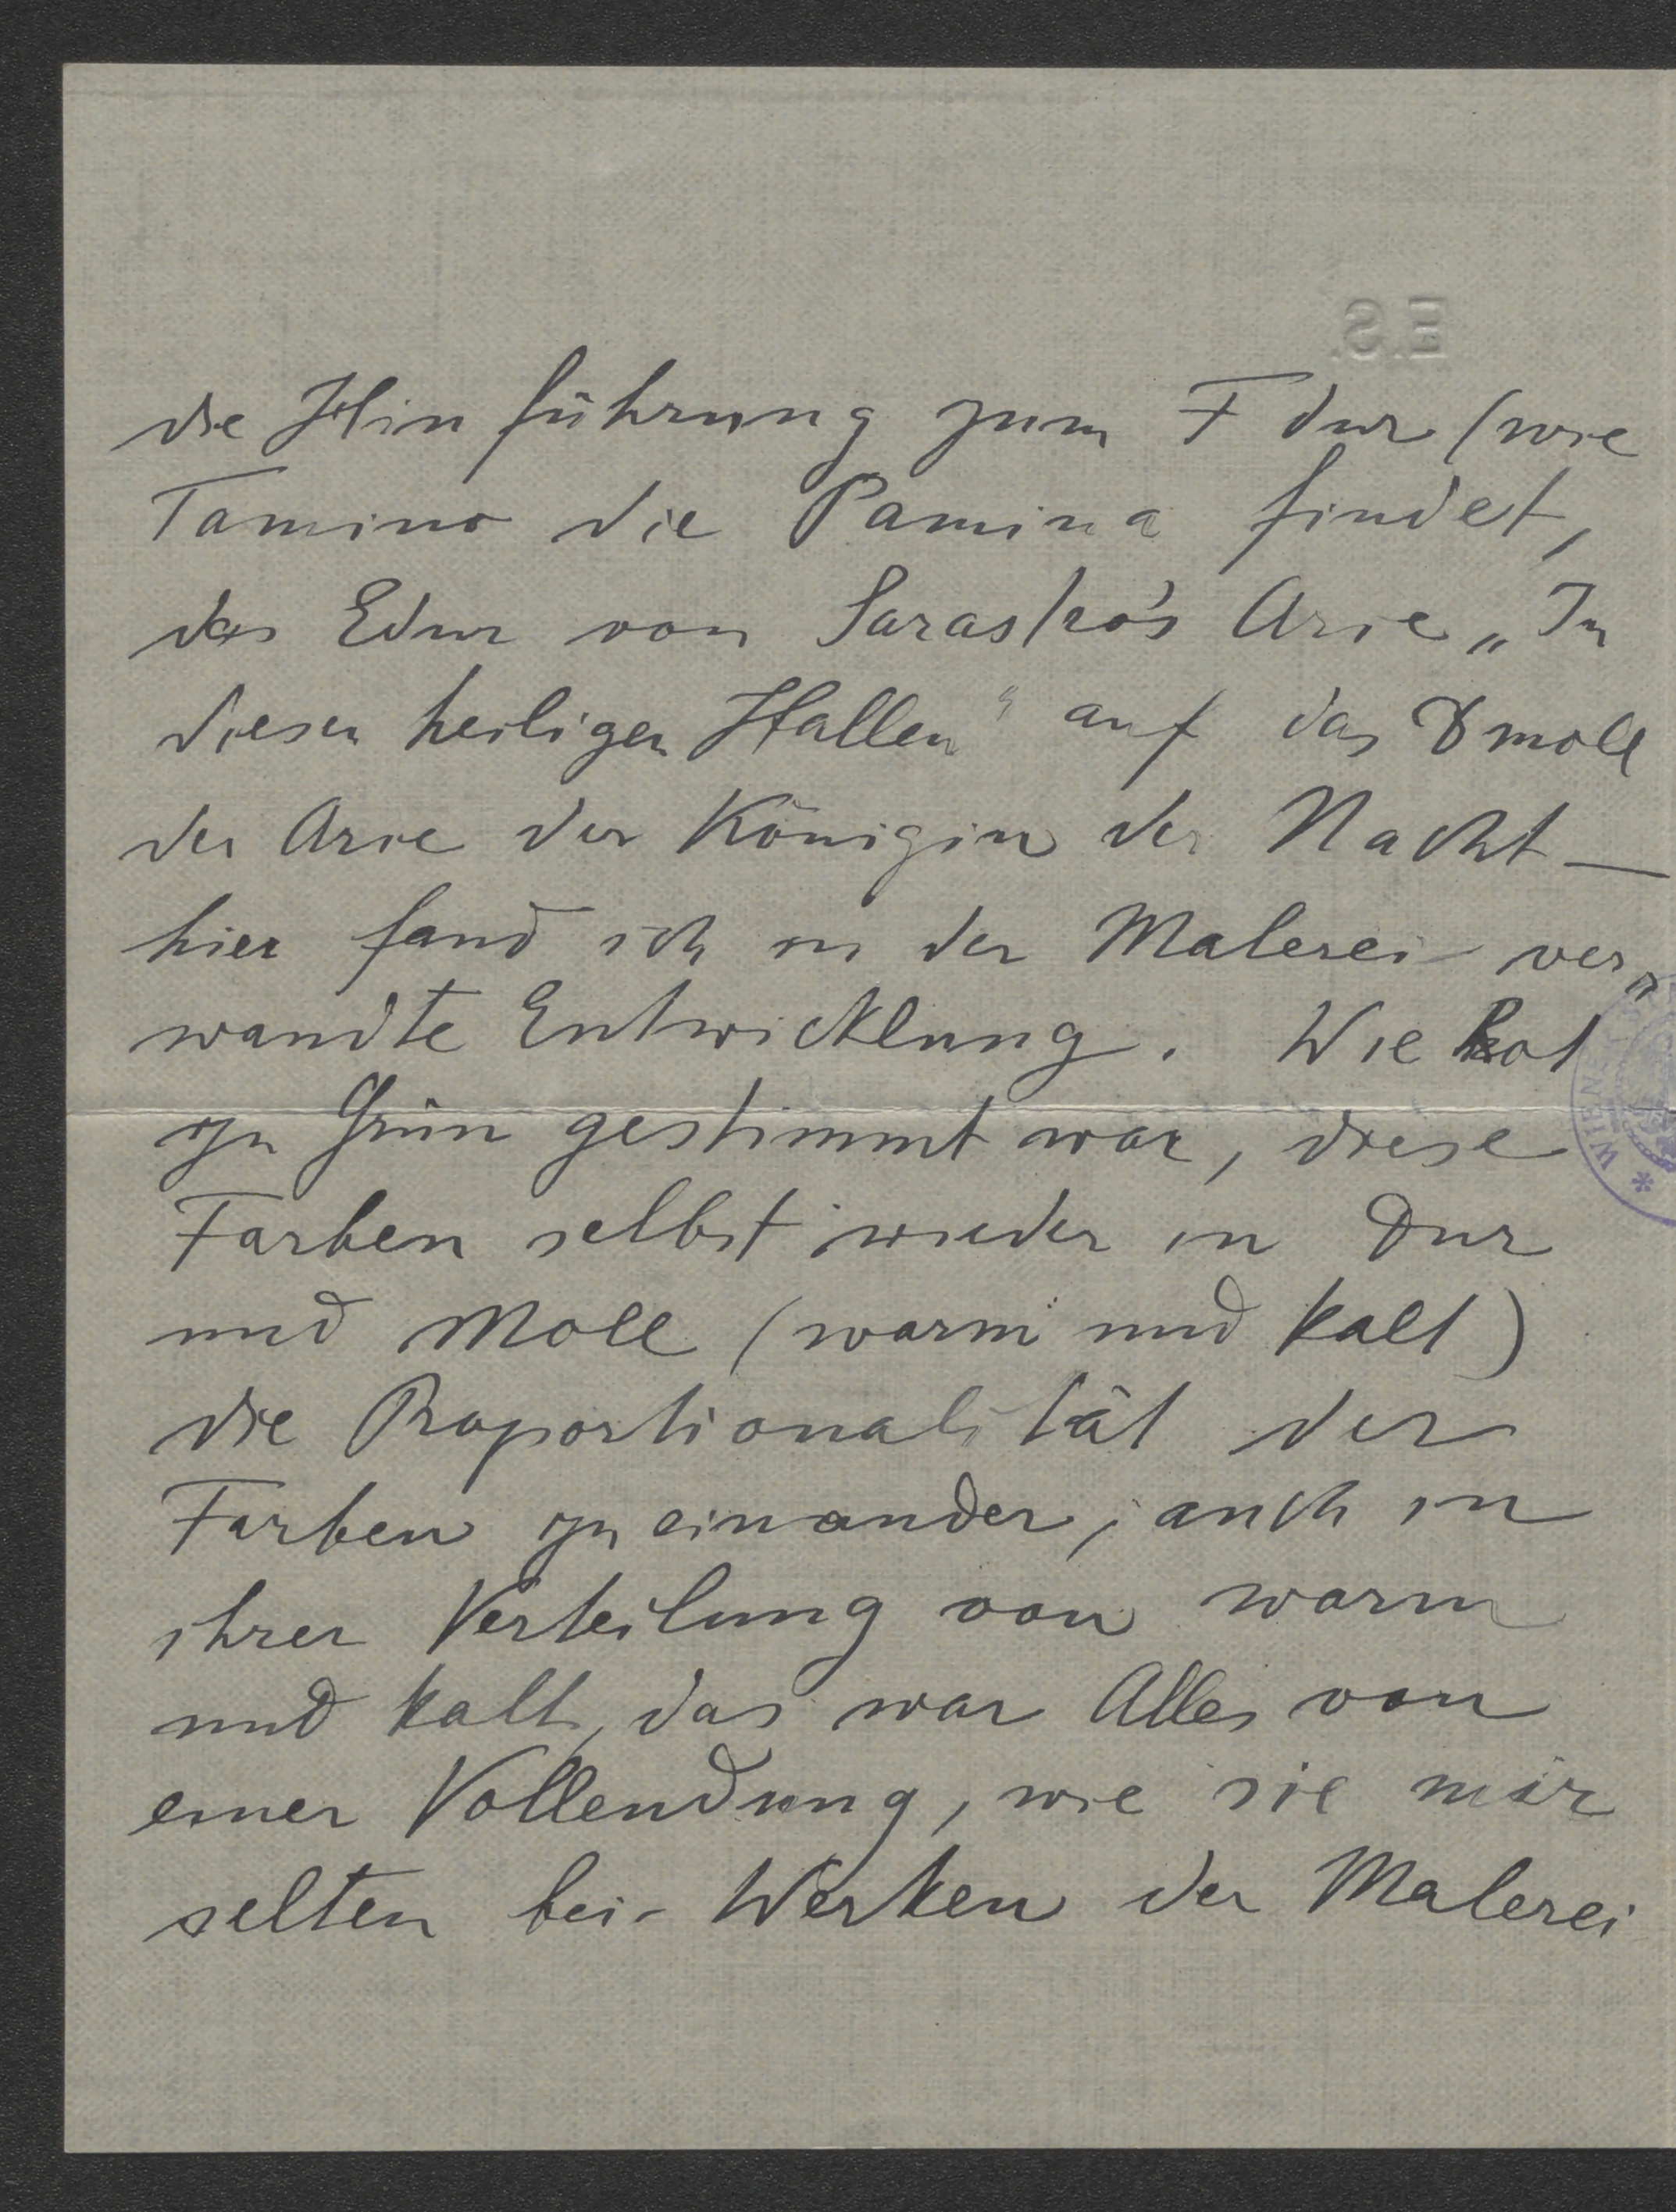 E.S.
die Hinführung zum F dur (wie
Tamino die Pamina findet,
das Edur von Sarastro's Arie „In
diesen heiligen Hallen" auf das D moll
der Arie der Königin der Nacht —
hier fand ich in der Malerei ver„
wandte Entwicklung. Wie Rot
zu Grün gestimmt war, diese
Farben selbst wieder in Dur
und Moll (warm und kalt)
die Proportionalität der
Farben zu einander, auch in
ihrer Verteilung von warm
und kalt, das war Alles von
einer Vollendung, wie sie mir
selten bei Werken der Malerei
* WIEN